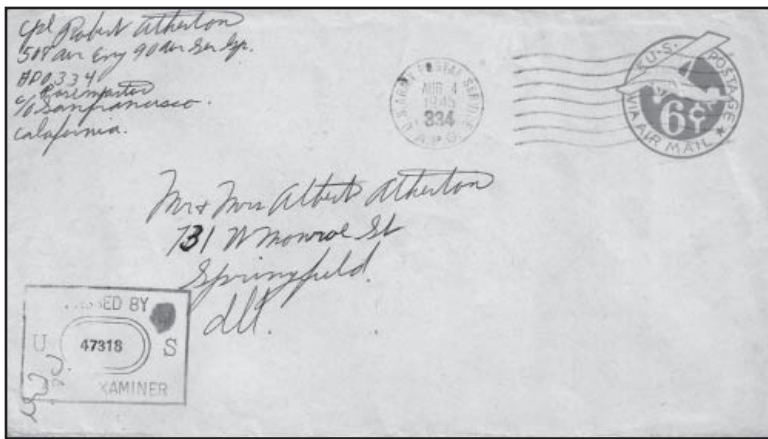 Cpl Robert Atherton
508 Air Eng 90 Air Ser Gp.
APO 334
c/o Postmaster
San Francisco.
Calafornia.
U.S. ARMY POSTAL SERVICE
AUG 4
1945
334
A.P.O.
U.S. POSTAGE
6¢
VIA AIR MAIL
Mr + Mrs Albert Atherton
731 N Monroe St
Springfield
Ill.
SED BY
U 47318 S
XAMINER